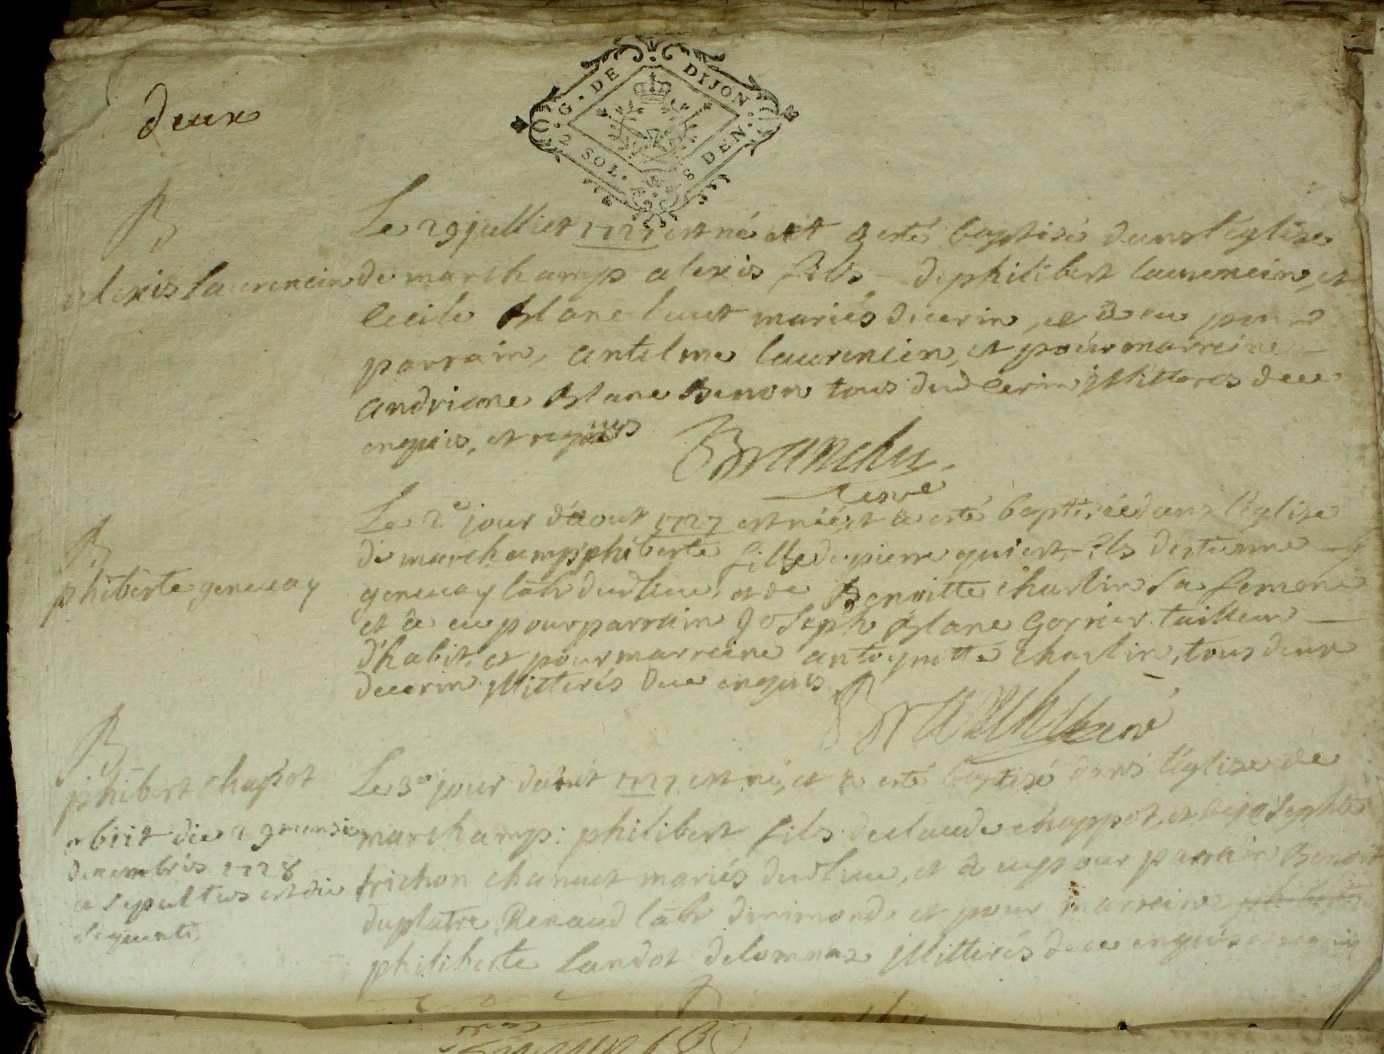 deux
G. DE DIJON
2 SOL. 8 DEN.
B
alexis laurencin
Le 29 juillet 1727 est né et a esté baptisé dans l'église
de marchamp alexis fils de philibert laurencin, et
Cecile Blanc luut mariés de cerin, et a eu pour
parrain, antelme laurencin, et pour marreine
andriane Blanc Benon tous dud Cerin illitterés de ce
enquis, et requis
Branchu
curé
B
phiberte genevay
Le 2e jour d'aout 1727 est née, et a esté baptisée dans l'église
de marchamp phiberte fille de pierre qui est fils d'estienne
genevay labr dud lieu, et de Benoitte Charlin sa femme
et a eu pour parrain Joseph Blanc Gorrier tailleur
d'habit, et pour marreine antoynette Charlin, tous deux
de cerin illitterés de ce enquis
Branchu curé
B
phibert Chappot
obiit die 29 mensis
decembris 1728
et sepultus est die
sequenti
Le 3e jour d'aout 1727 est né, et a esté baptisé dans l'église de
marchamp: philibert fils de claude chappot, et de josephte
trichon chanut mariés dud lieu, et a eu pour parrain Benoit
duplatre Renaud labr d'inimond et pour marreine
philiberte Landot de lomnaz illitterés de ce enquis et requis